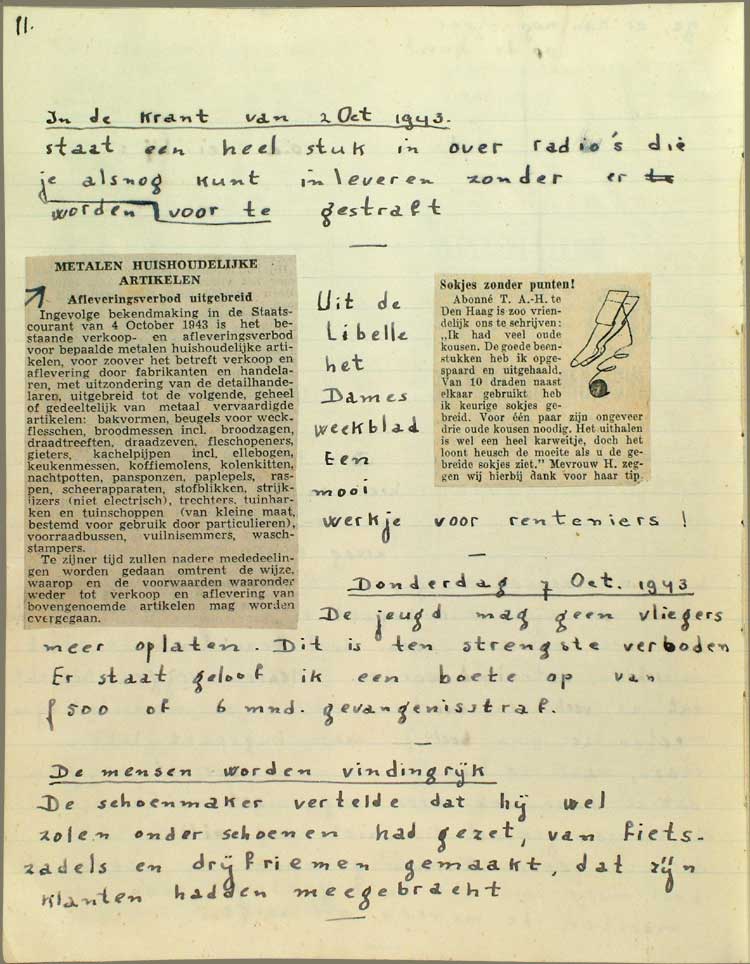 11.
In de Krant van 2 Oct 1943.
staat een heel stuk in over radio's die
je alsnog kunt inleveren zonder er te
worden voor te gestraft
METALEN HUISHOUDELIJKE
ARTIKELEN
Afleveringsverbod uitgebreid
Ingevolge bekendmaking in de Staats-
courant van 4 October 1943 is het be-
staande verkoop- en afleveringsverbod
voor bepaalde metalen huishoudelijke arti-
kelen, voor zoover het betreft verkoop en
aflevering door fabrikanten en handela-
ren, met uitzondering van de detailhande-
laren, uitgebreid tot de volgende, geheel
of gedeeltelijk van metaal vervaardigde
artikelen: bakvormen, beugels voor weck-
flesschen, broodmessen incl. broodzagen,
draadtreeften, draadzeven, fleschopeners,
gieters, kachelpijpen incl. ellebogen,
keukenmessen, koffiemolens, kolenkitten,
nachtpotten, pansponzen, paplepels, ras-
pen, scheerapparaten, stofblikken, strijk-
ijzers (niet electrisch), trechters, tuinhar-
ken en tuinschoppen (van kleine maat,
bestemd voor gebruik door particulieren),
voorraadbussen, vuilnisemmers, wasch-
stampers.
Te zijner tijd zullen nadere mededeelin-
gen worden gedaan omtrent de wijze,
waarop en de voorwaarden waaronder
weder tot verkoop en aflevering van
bovengenoemde artikelen mag worden
overgegaan.
Uit de
Libelle
het
Dames
weekblad
Een
mooi
werkje voor renteniers !
Sokjes zonder punten!
Abonné T. A.-H. te
Den Haag is zoo vrien-
delijk ons te schrijven:
„Ik had veel oude
kousen. De goede been-
stukken heb ik opge-
spaard en uitgehaald.
Van 10 draden naast
elkaar gebruikt heb
ik keurige sokjes ge-
breid. Voor één paar zijn ongeveer
drie oude kousen noodig. Het uithalen
is wel een heel karweitje, doch het
loont heusch de moeite als u de ge-
breide sokjes ziet." Mevrouw H. zeg-
gen wij hierbij dank voor haar tip
Donderdag 7 Oct. 1943
De jeugd mag geen vliegers
meer oplaten. Dit is ten strengste verboden
Er staat geloof ik een boete op van
f 500 of 6 mnd. gevangenisstraf.
De mensen worden vindingrijk
De schoenmaker vertelde dat hij wel
zolen onder schoenen had gezet, van fiets-
zadels en drijfriemen gemaakt, dat zijn
klanten hadden meegebracht